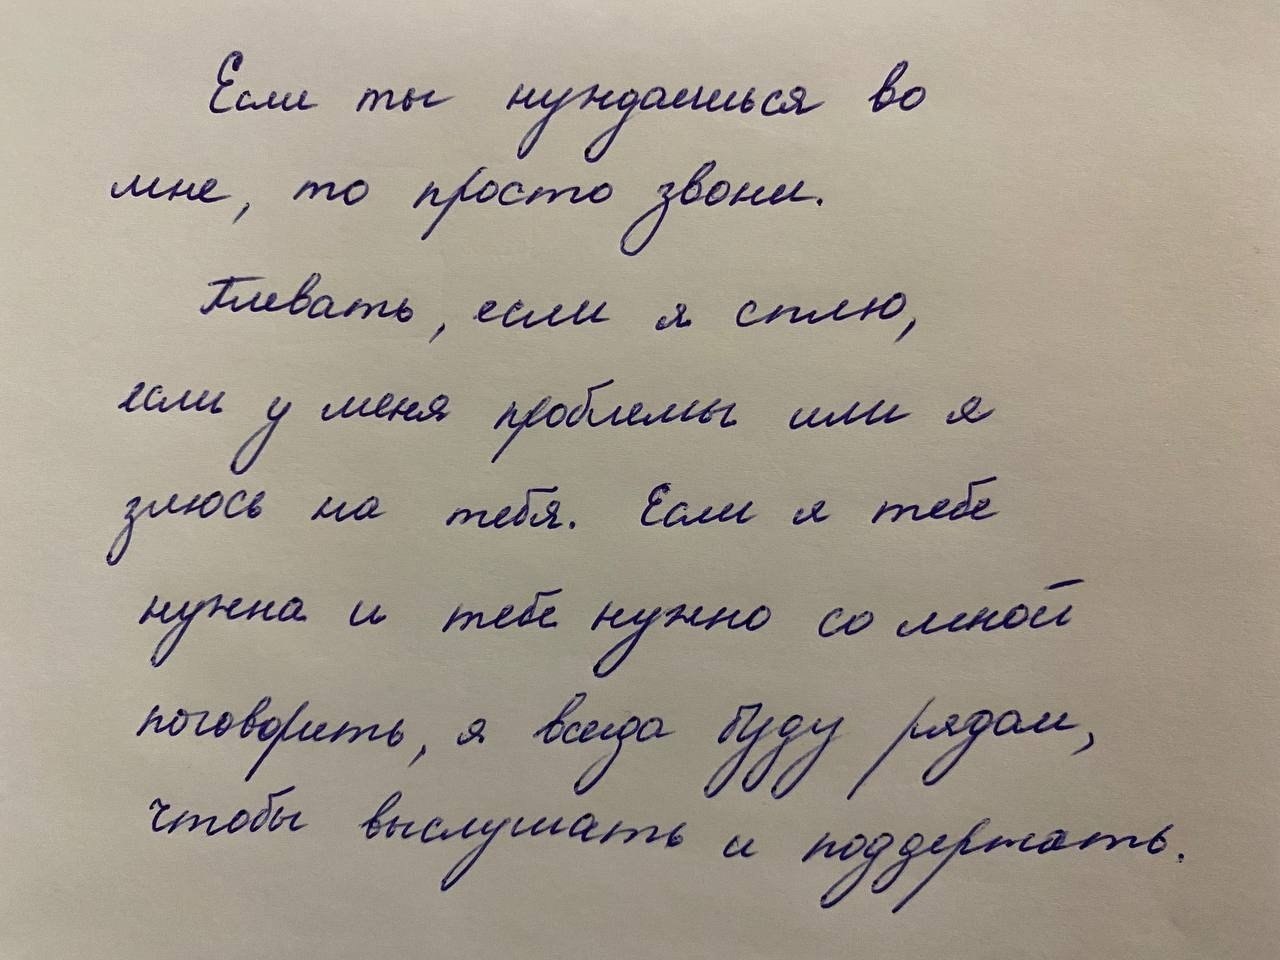 Если ты нуждаешься во
мне, то просто звони.
Плевать, если я сплю,
если у меня проблемы или я
злюсь на тебя. Если я тебе
нужна и тебе нужно со мной
поговорить, я всегда буду рядом,
чтобы выслушать и поддержать.